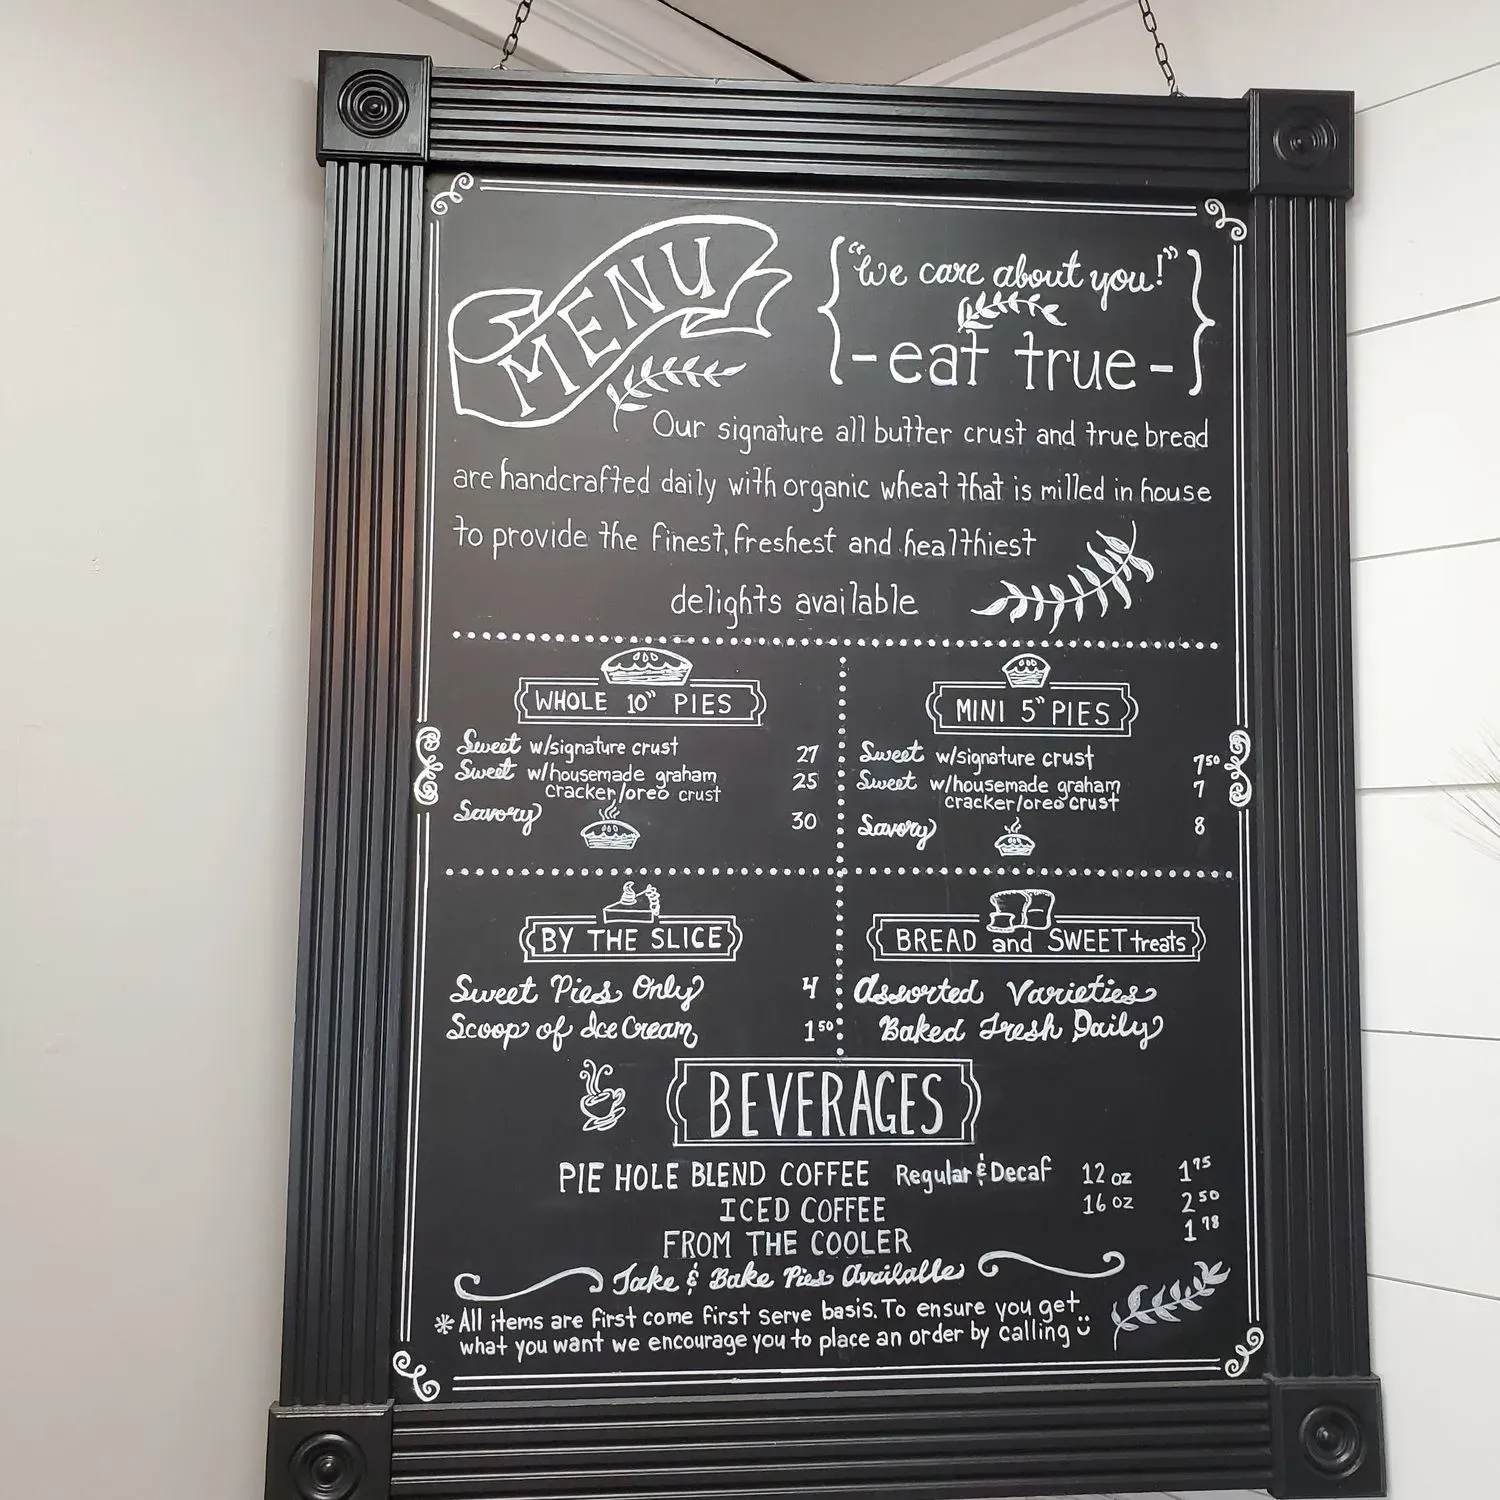 MENU
"We care about you!"
- eat true -
Our signature all butter crust and true bread
are handcrafted daily with organic wheat that is milled in house
to provide the finest, freshest and healthiest
delights available
WHOLE 10" PIES
Sweet w/signature crust 27
Sweet w/housemade graham 25
cracker/oreo crust
Savory 30
MINI 5" PIES
Sweet w/signature crust 7⁵⁰
Sweet w/housemade graham 7
cracker/oreo crust
Savory 8
BY THE SLICE
Sweet Pies Only 4
Scoop of Ice Cream 1⁵⁰
BREAD and SWEET treats
Assorted Varieties
Baked Fresh Daily
BEVERAGES
PIE HOLE BLEND COFFEE Regular & Decaf 12 oz 1⁷⁵
ICED COFFEE 16 oz 2⁵⁰
FROM THE COOLER 1⁷⁸
Take & Bake Pies Available
*All items are first come first serve basis. To ensure you get
what you want we encourage you to place an order by calling